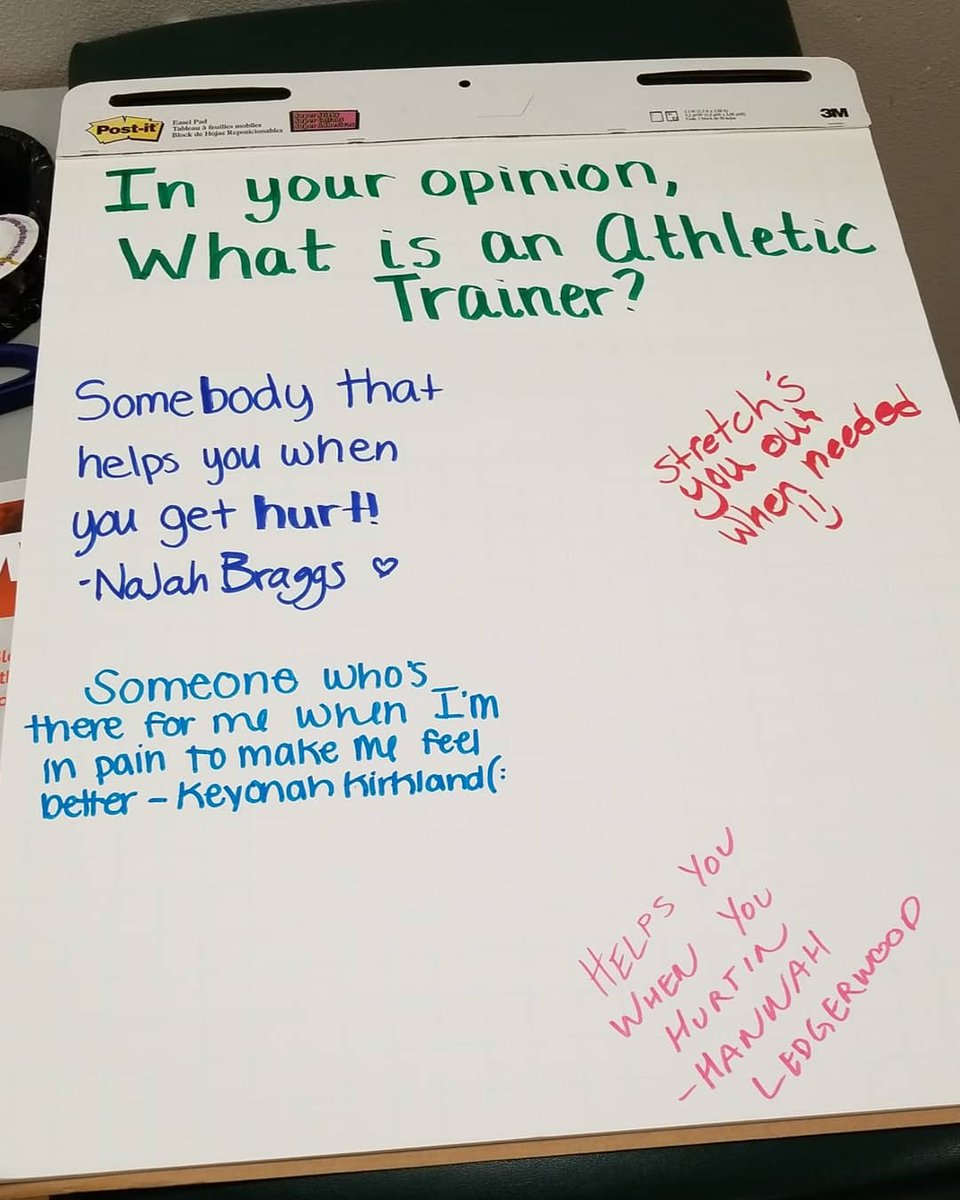 Post-it
Easel Pad
Tableau à feuilles mobiles
Block de Hojas Reposicionables
3M
In your opinion,
What is an Athletic
Trainer?
Somebody that
helps you when
you get hurt!!
-NaJah Braggs ♡
Stretch's
you out
when needed
!!)
Someone who's
there for me when I'm
in pain to make me feel
better - Keyonah Kirkland(:
HELPS YOU
WHEN YOU
HURTIN
-HANNAH
LEDGERWOOD